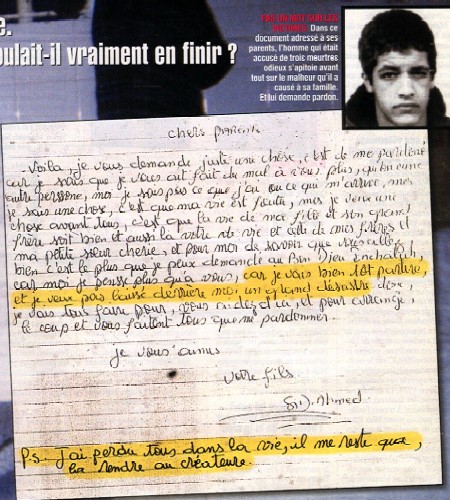 e.
oulait-il vraiment en finir ?
PAS UN MOT SUR LES
VICTIMES. Dans ce
document adressé à ses
parents, l'homme qui était
accusé de trois meurtres
odieux s'apitoie avant
tout sur le malheur qu'il a
causé à sa famille.
Et lui demande pardon.
chers parents
Voila, je vous demande juste une chose, c'est de me pardoné
car je sais que je vous ait fait du mal à vous plus, qu'on'une
autre persone, moi je sais pas ce que j'ai ou ce qui m'arrive, mes
je sais une chose, c'est que ma vie est foutu, mes je veux une
chose avant tous, c'est que la vie de ma fille et son grand
frère soit bien et aussi la votre de vie et celle de mes frères et
ma petite soeur cherie, et pour moi de savoir que vous allez
bien c'est le plus que je peux demandé au Bon Dieu inchallah,
car moi je pense plus qu'a vous, car je vais bien tôt partire,
et je veux pas laissé derrière moi un grand désastre donc,
je vais tous faire pour, vous, et pour arrangé,
le coup et vous faitent tous que me pardonner.
je vous aimes
votre fils
Ahmed
Ps. J'ai perdu tous dans la vie, il me reste que,
la rendre au créateure.